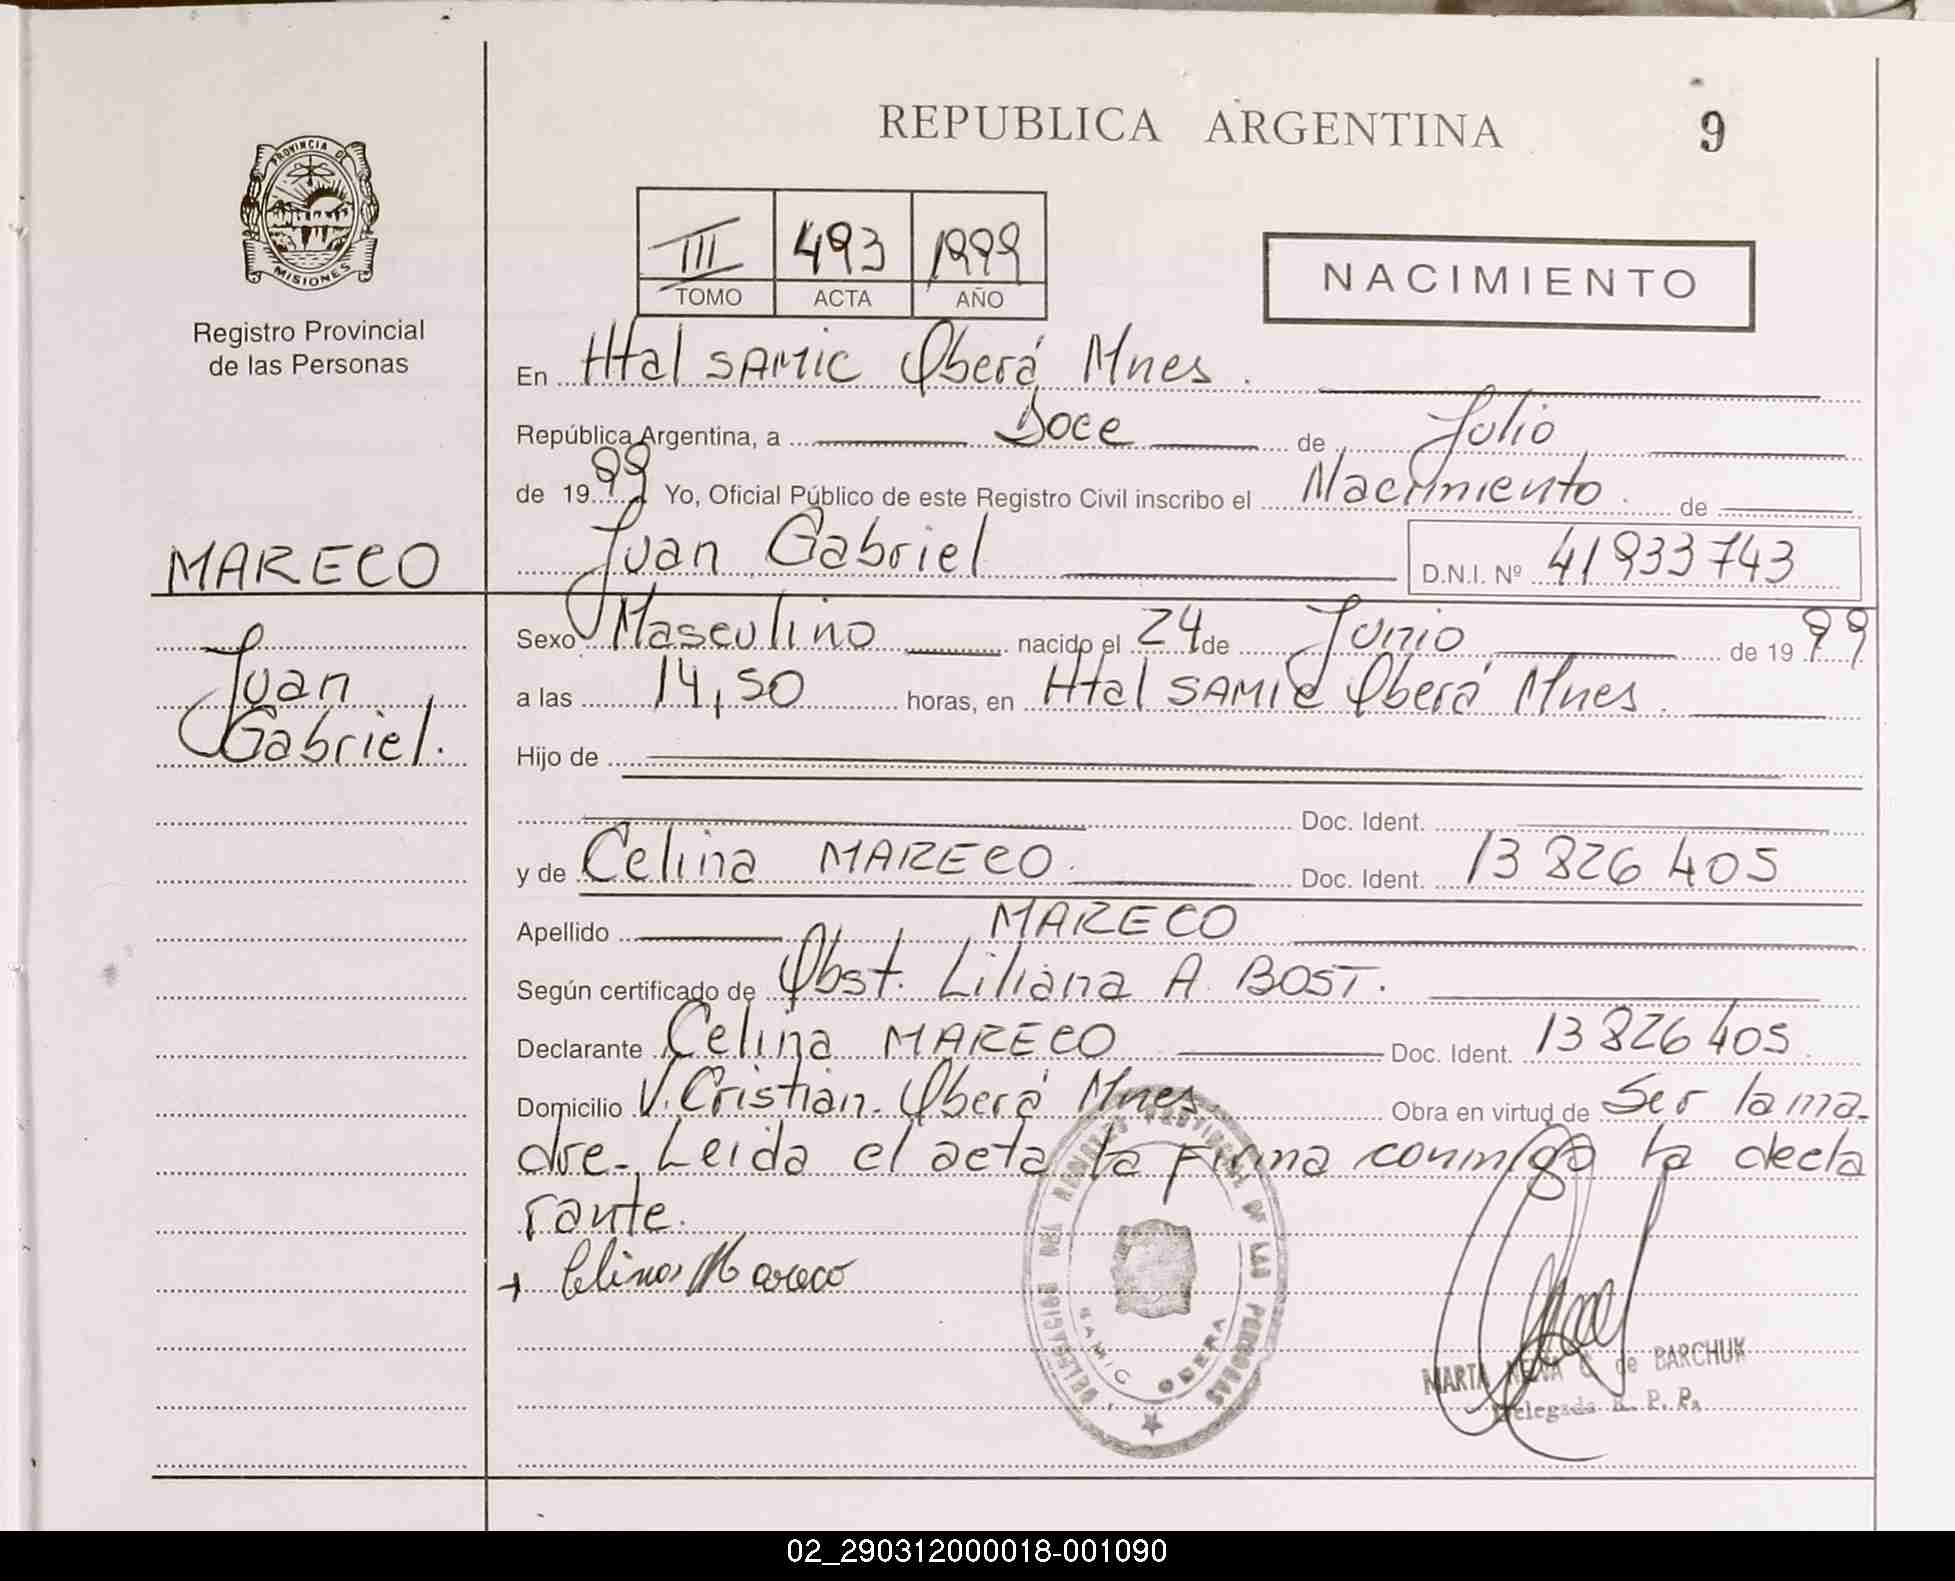 REPUBLICA ARGENTINA
9
PROVINCIA DE
MISIONES
Registro Provincial
de las Personas
III 493 1999
TOMO ACTA AÑO
NACIMIENTO
En Htal SAMIC Oberá Mnes.
República Argentina, a Doce de Julio
de 1999 Yo, Oficial Público de este Registro Civil inscribo el Nacimiento. de
MARECO
Juan Gabriel D.N.I. Nº 41933743
Juan
Gabriel.
Sexo Masculino nacido el 24 de Junio de 1999
a las 14,50 horas, en Htal SAMIC Oberá Mnes.
Hijo de
Doc. Ident.
y de Celina MARECO. Doc. Ident. 13 826 405
Apellido MARECO
Según certificado de Obst. Liliana A. BOST.
Declarante Celina MARECO Doc. Ident. 13 826 405
Domicilio V. Cristian. Oberá Mnes. Obra en virtud de Ser la ma-
dre-. Leida el acta la firma conmigo la decla
rante.
+ Celina Mareco
DELEGACION DEL REGISTRO PROVINCIAL DE LAS PERSONAS
SAMIC OBERA
MARTA C. de BARCHUK
Delegada R. P. P.
02_290312000018-001090